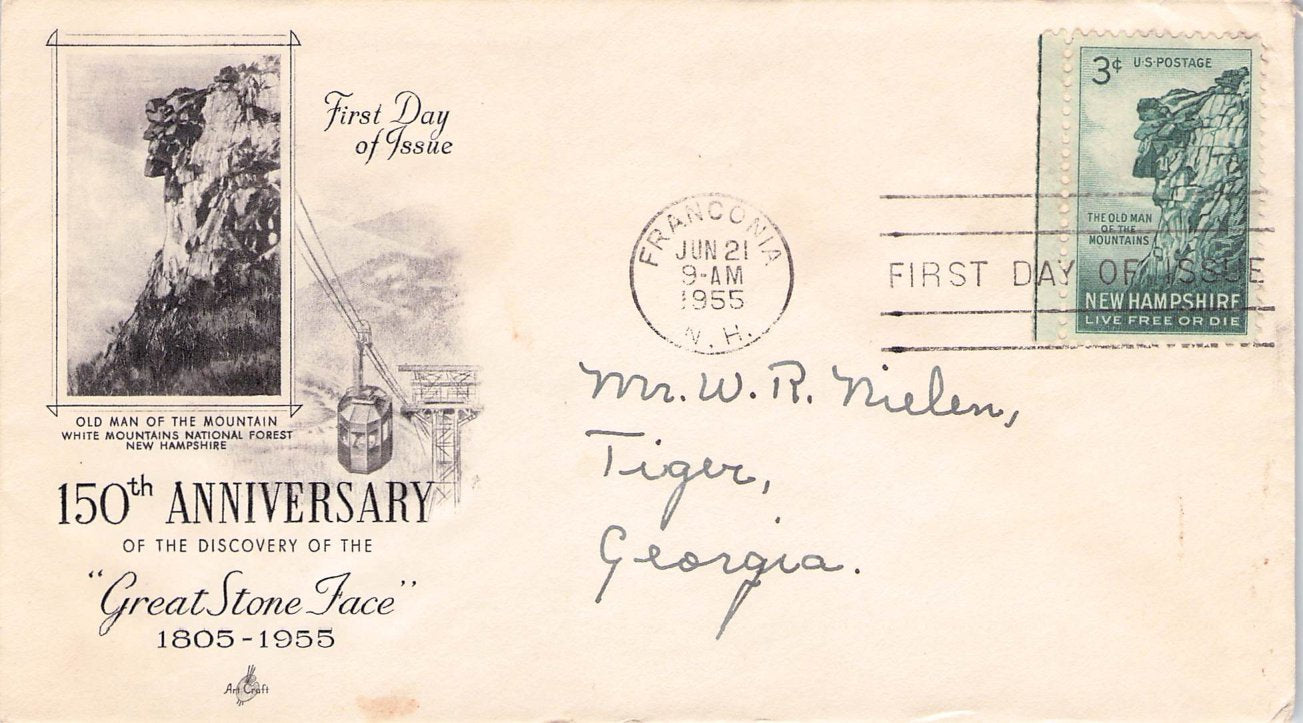 First Day
of Issue
OLD MAN OF THE MOUNTAIN
WHITE MOUNTAINS NATIONAL FOREST
NEW HAMPSHIRE
150th ANNIVERSARY
OF THE DISCOVERY OF THE
"Great Stone Face"
1805-1955
Art Craft
FRANCONIA
JUN 21
9-AM
1955
N. H.
3¢ U·S·POSTAGE
THE OLD MAN
OF THE
MOUNTAINS
FIRST DAY OF ISSUE
NEW HAMPSHIRE
LIVE FREE OR DIE
Mr. W. R. Nielen,
Tiger,
Georgia.